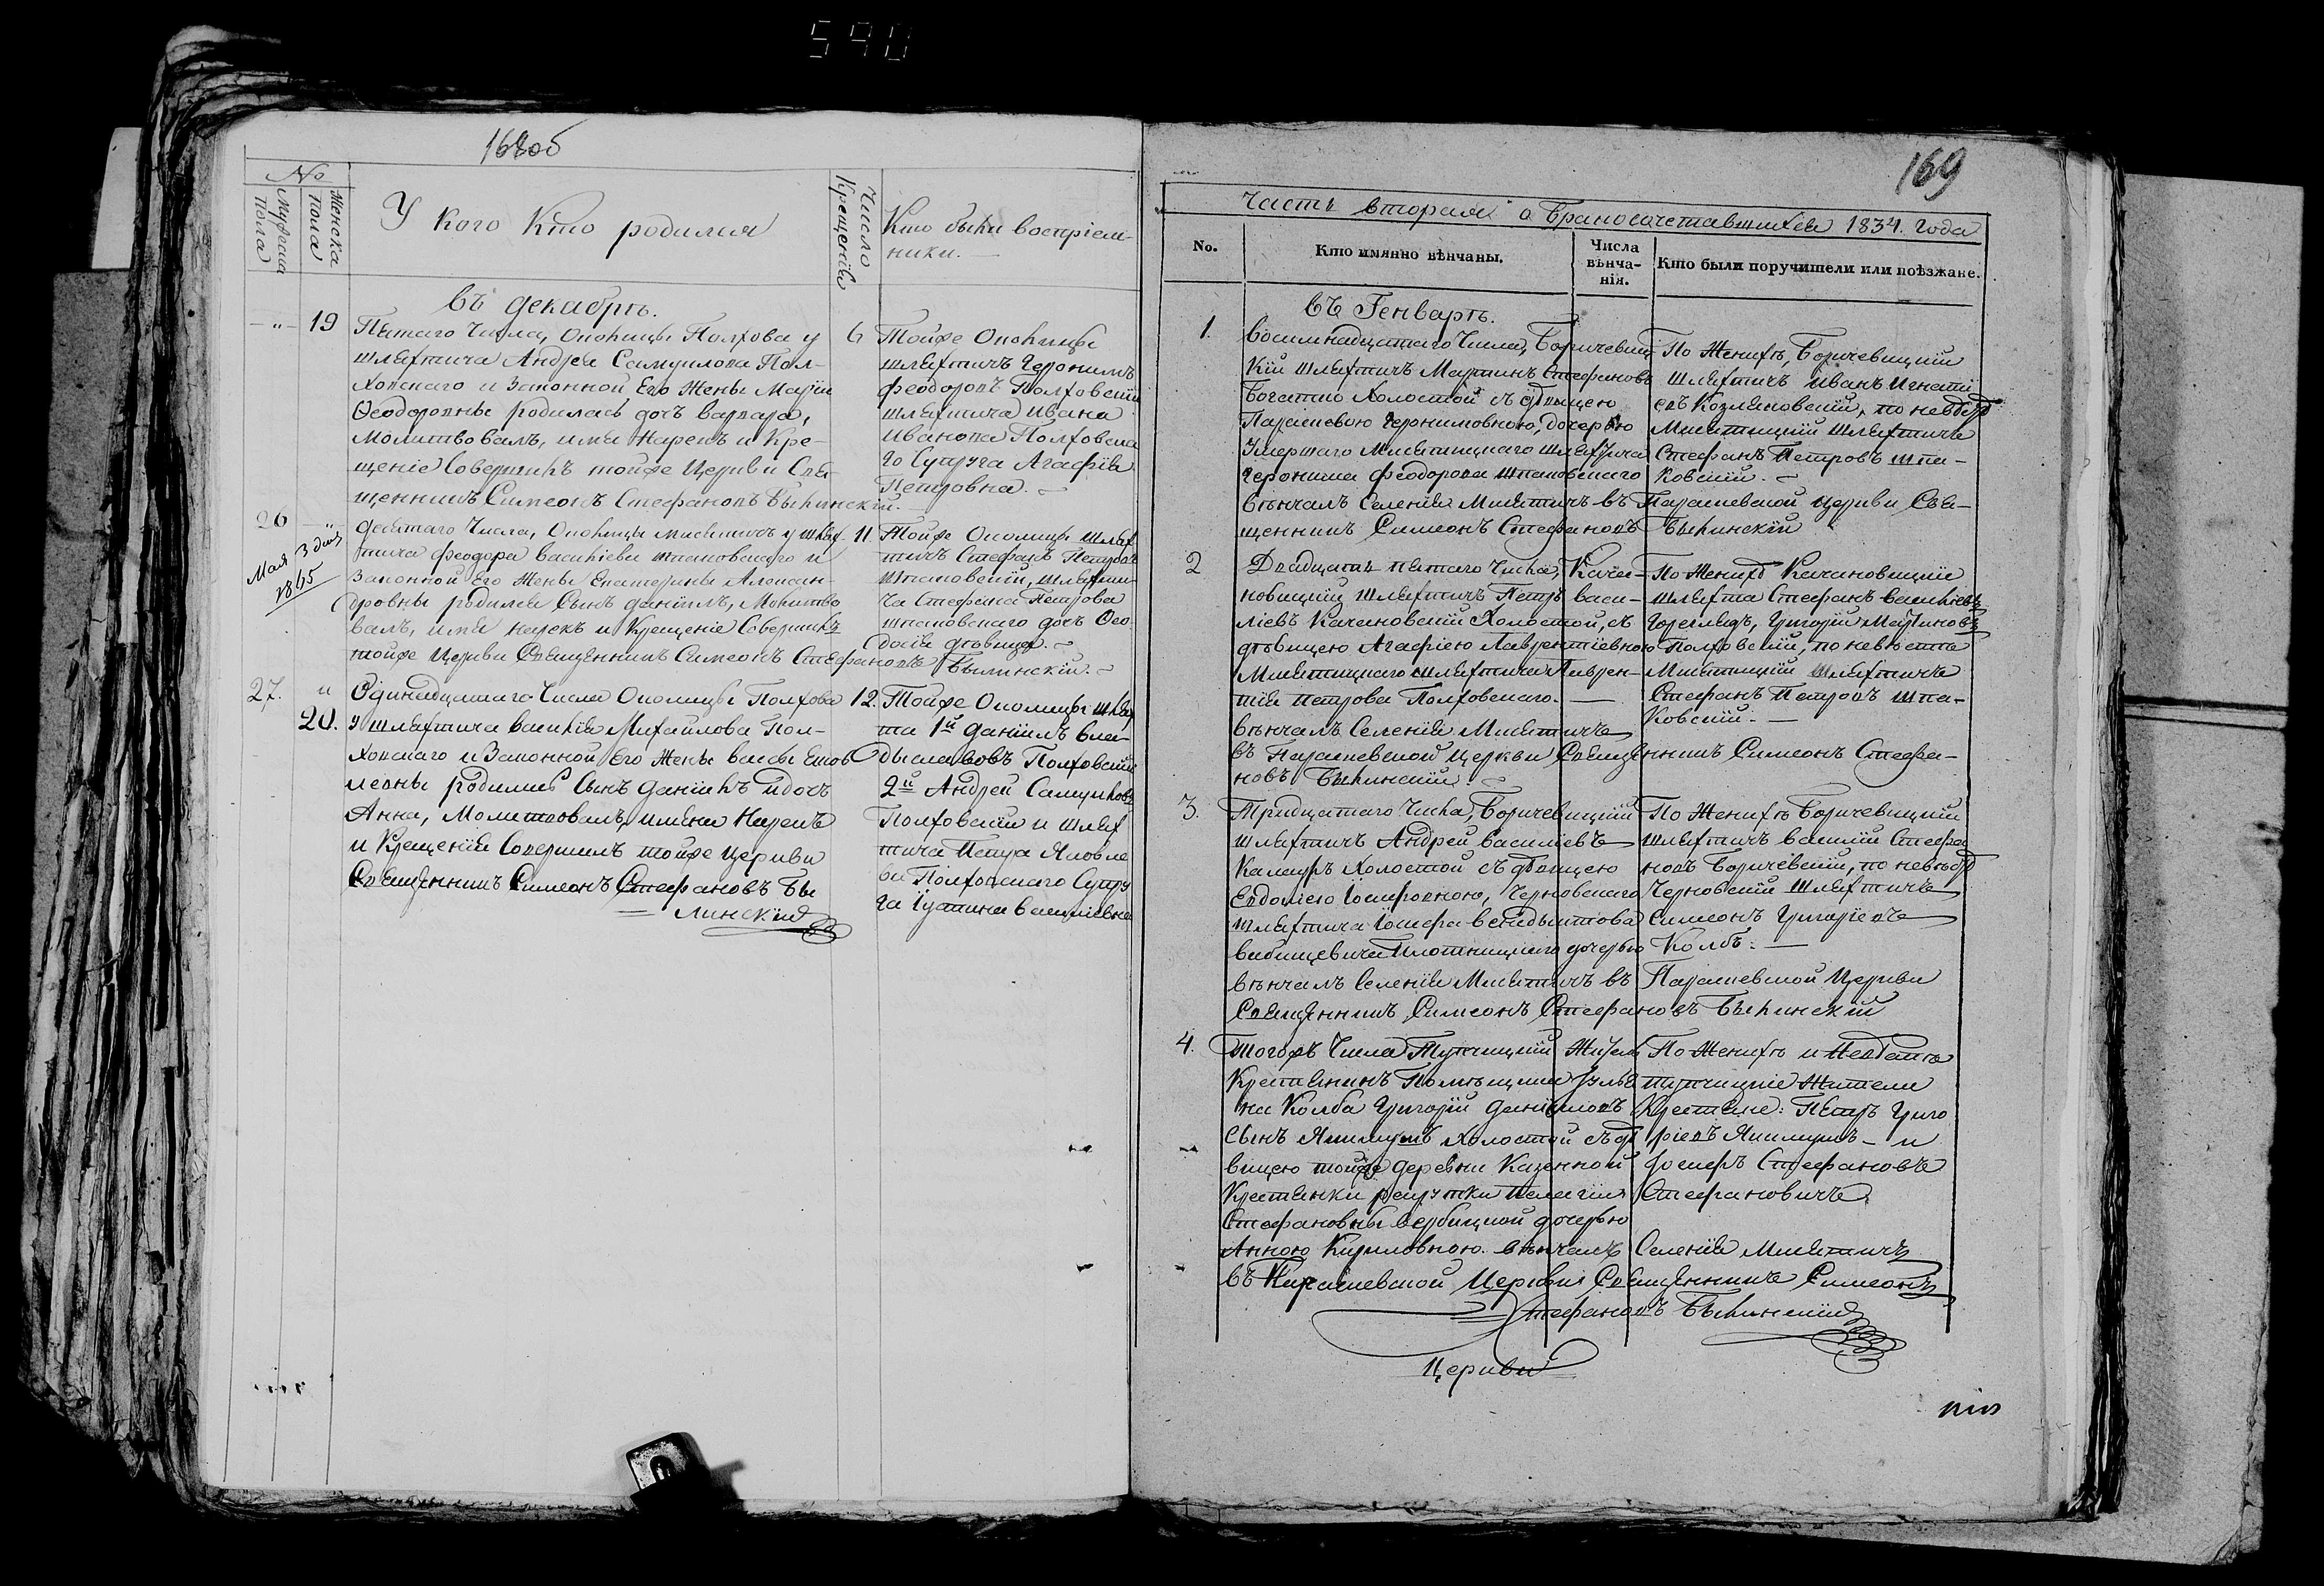 590
168об
№
Мужеска пола
Женска пола
У кого кто родился
Число Крещенія
Кто были воспріем-
ники. —
Въ декабрѣ.
— „ — 19
Пятаго Числа, Околицы Полхова у
шляхтича Андрея Самуилова Пол-
ховскаго и Законной Его Жены Маріи
Ѳеодоровны родилась дочъ варвара,
Молитвовалъ, имя Нарекъ и Кре-
щеніе Совершилъ тойже Церкви Свя-
щенникъ Симеонъ Стефановъ Былинскій. —
6
Тойже Околицы
шляхтичъ Іеронимъ
феодоровъ Полховскій
шляхтича Ивана
Иванова Полховска
го Супруга Агафія
Петровна. —
26 — „
Мая 3 дня
1865
девятаго Числа, Околицы мисятичъ у шлях-
тича феодора васильева шпаковскаго и
Законной Его Жены Екатерины Алексан-
дровны родился Сынъ даніилъ, Молитво
валъ, имя нарекъ и Крещеніе Совершилъ
тойже Церкви Священникъ Симеонъ Стефановъ Былинскій. —
11.
Тойже Околицы шлях
тичъ Стефанъ Петровъ
Шпаковскій, шляхти-
ча Стефана Петрова
шпаковскаго дочъ Ѳео
досія дѣвица. —
27. „
20.
Одинадцатаго Числа Околицы Полхова
у шляхтича василія Михайлова Пол-
ховскаго и Законной Его Жены
родились Сынъ даніилъ и дочъ
Анна, Молитвовалъ, имена Нарекъ
и Крещеніе Совершилъ тойже Церкви
Священникъ Симеонъ Стефановъ Бы
— линскій
12.
Тойже Околицы шлях
та 1й даніилъ вла-
дыславовъ Полховскій
2й Андрей Самуиловъ
Полховскій и шлях
тича Петра Яковле
ва Полховскаго Супру
га Іустина василіевна
169
Часть вторая о Бракосочетавшихся 1834. Года
No.
Кто имянно вѣнчаны.
Числа
вѣнча-
нія.
Кто были поручишели или поѣзжане.
Въ Генварѣ.
1.
восимнадцатаго Числа, Боричевиц
кій шляхтичъ Мартинъ Стефановъ
Богатко Холостой съ дѣвицею
Параскевою Іеронимовною, дочерью
Умершаго Мисятицкаго шляхтича
Іеронима феодорова шпаковскаго
вѣнчалъ Селенія Мисятичъ въ Параскевской Церкви Свя-
щенникъ Симеонъ Стефановъ Былинскій
По Женихѣ, Боричевицкій
шляхтичъ Иванъ Игнаті
евъ Козляковскій, по невѣстѣ
Мисятицкій шляхтичъ
Стефанъ Петровъ шпа-
ковскій. —
2
Двадцать пятаго Числа, Кача-
новицкій шляхтичъ Петръ васи-
ліевъ Качановскій Холостой, съ
дѣвицею Агафіею Лаврентіевною
Мисятицкаго шляхтича Лаврен-
тія Петрова Полховскаго. —
вѣнчалъ Селенія Мисятичъ
въ Параскевской Церкви Священникъ Симеонъ Стефа-
новъ Былинскій. —
По Женихѣ Качановицкіе
шляхта Стефанъ василіевъ
Григорій Мартиновъ
Полховскій, по невѣстѣ
Мисятицкій шляхтичъ
Стефанъ Петровъ шпа-
ковскій. —
3.
Тридцатаго Числа, Боричевицкій
шляхтичъ Андрей василіевъ
Качмръ Холостой съ дѣвицею
Евдокіею Іосифовною, Черновскаго
шляхтича Іосифа венедыктова
дочерью
вѣнчалъ Селенія Мисятичъ въ Параскевской Церкви
Священникъ Симеонъ Стефановъ Былинскій
По Женихѣ Боричевицкій
шляхтичъ василій Стефа
новъ Боричевскій, по невѣстѣ
Черновскій шляхтичъ
Симеонъ Григоріевъ
Колбъ. —
4.
Тогожъ Числа Тупчицкій Житель
Крестянинъ Помѣщика
на Колба Григорій даніиловъ
Сынъ Якимукъ Холостой съ дѣ
вицею тойже деревни Казенной
Крестянки рекрутки Пелагіи
Стефановны вербицкой дочерью
Анною Кириловною. вѣнчалъ Селенія Мисятичъ
въ Параскевской Церкви Священникъ Симеонъ
Стефановъ Былинскій
По Женихѣ и Невѣстѣ
тупчицкіе Жители
Крестяне: Петръ Григо
ріевъ Якимукъ — и
Іосифъ Стефановъ
Стефановичъ
Церкви